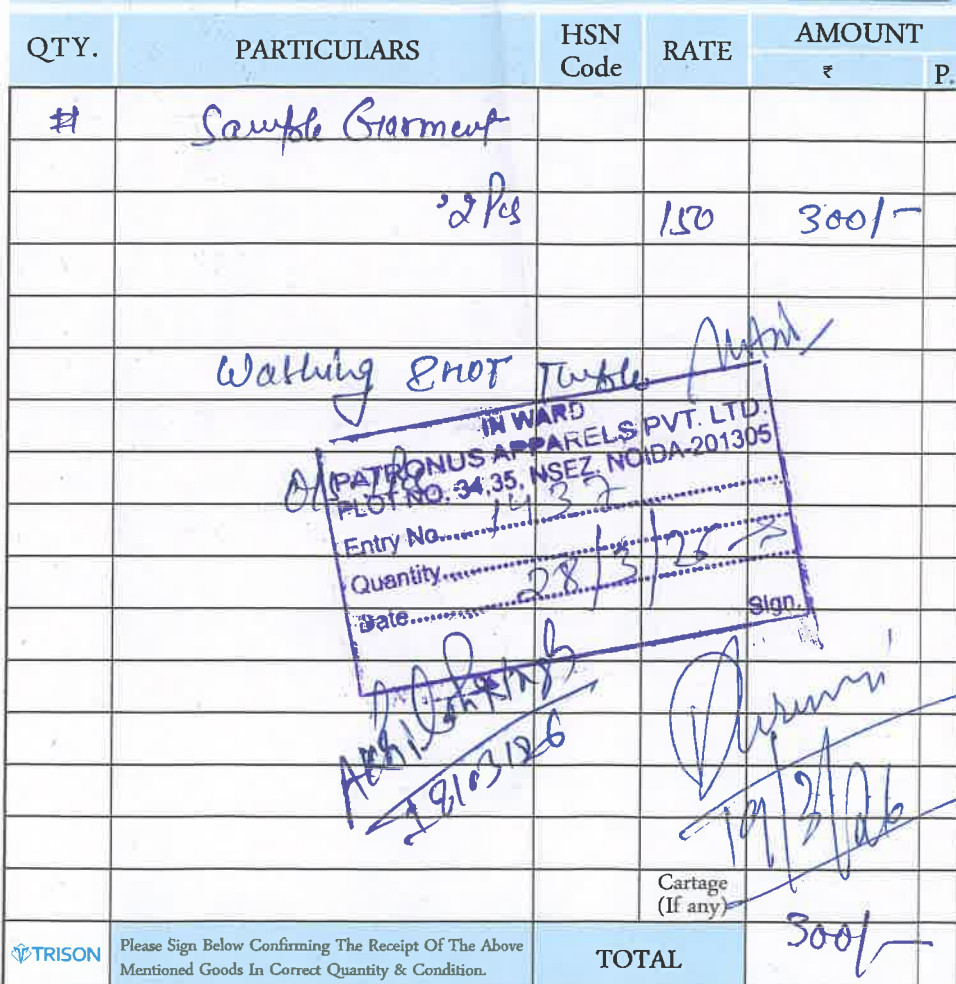 QTY. PARTICULARS HSN Code RATE AMOUNT
₹ P.
# Sample Garment
2 Pcs 150 300/-
Washing
IN WARD
PATRONUS APPARELS PVT. LTD.
PLOT NO. 34,35, NSEZ, NOIDA-201305
Entry No. 1437
Quantity
Date 28/3/26
Sign.
18/03/26
19/3/26
Cartage
(If any)
TRISON Please Sign Below Confirming The Receipt Of The Above
Mentioned Goods In Correct Quantity & Condition.
TOTAL 300/-